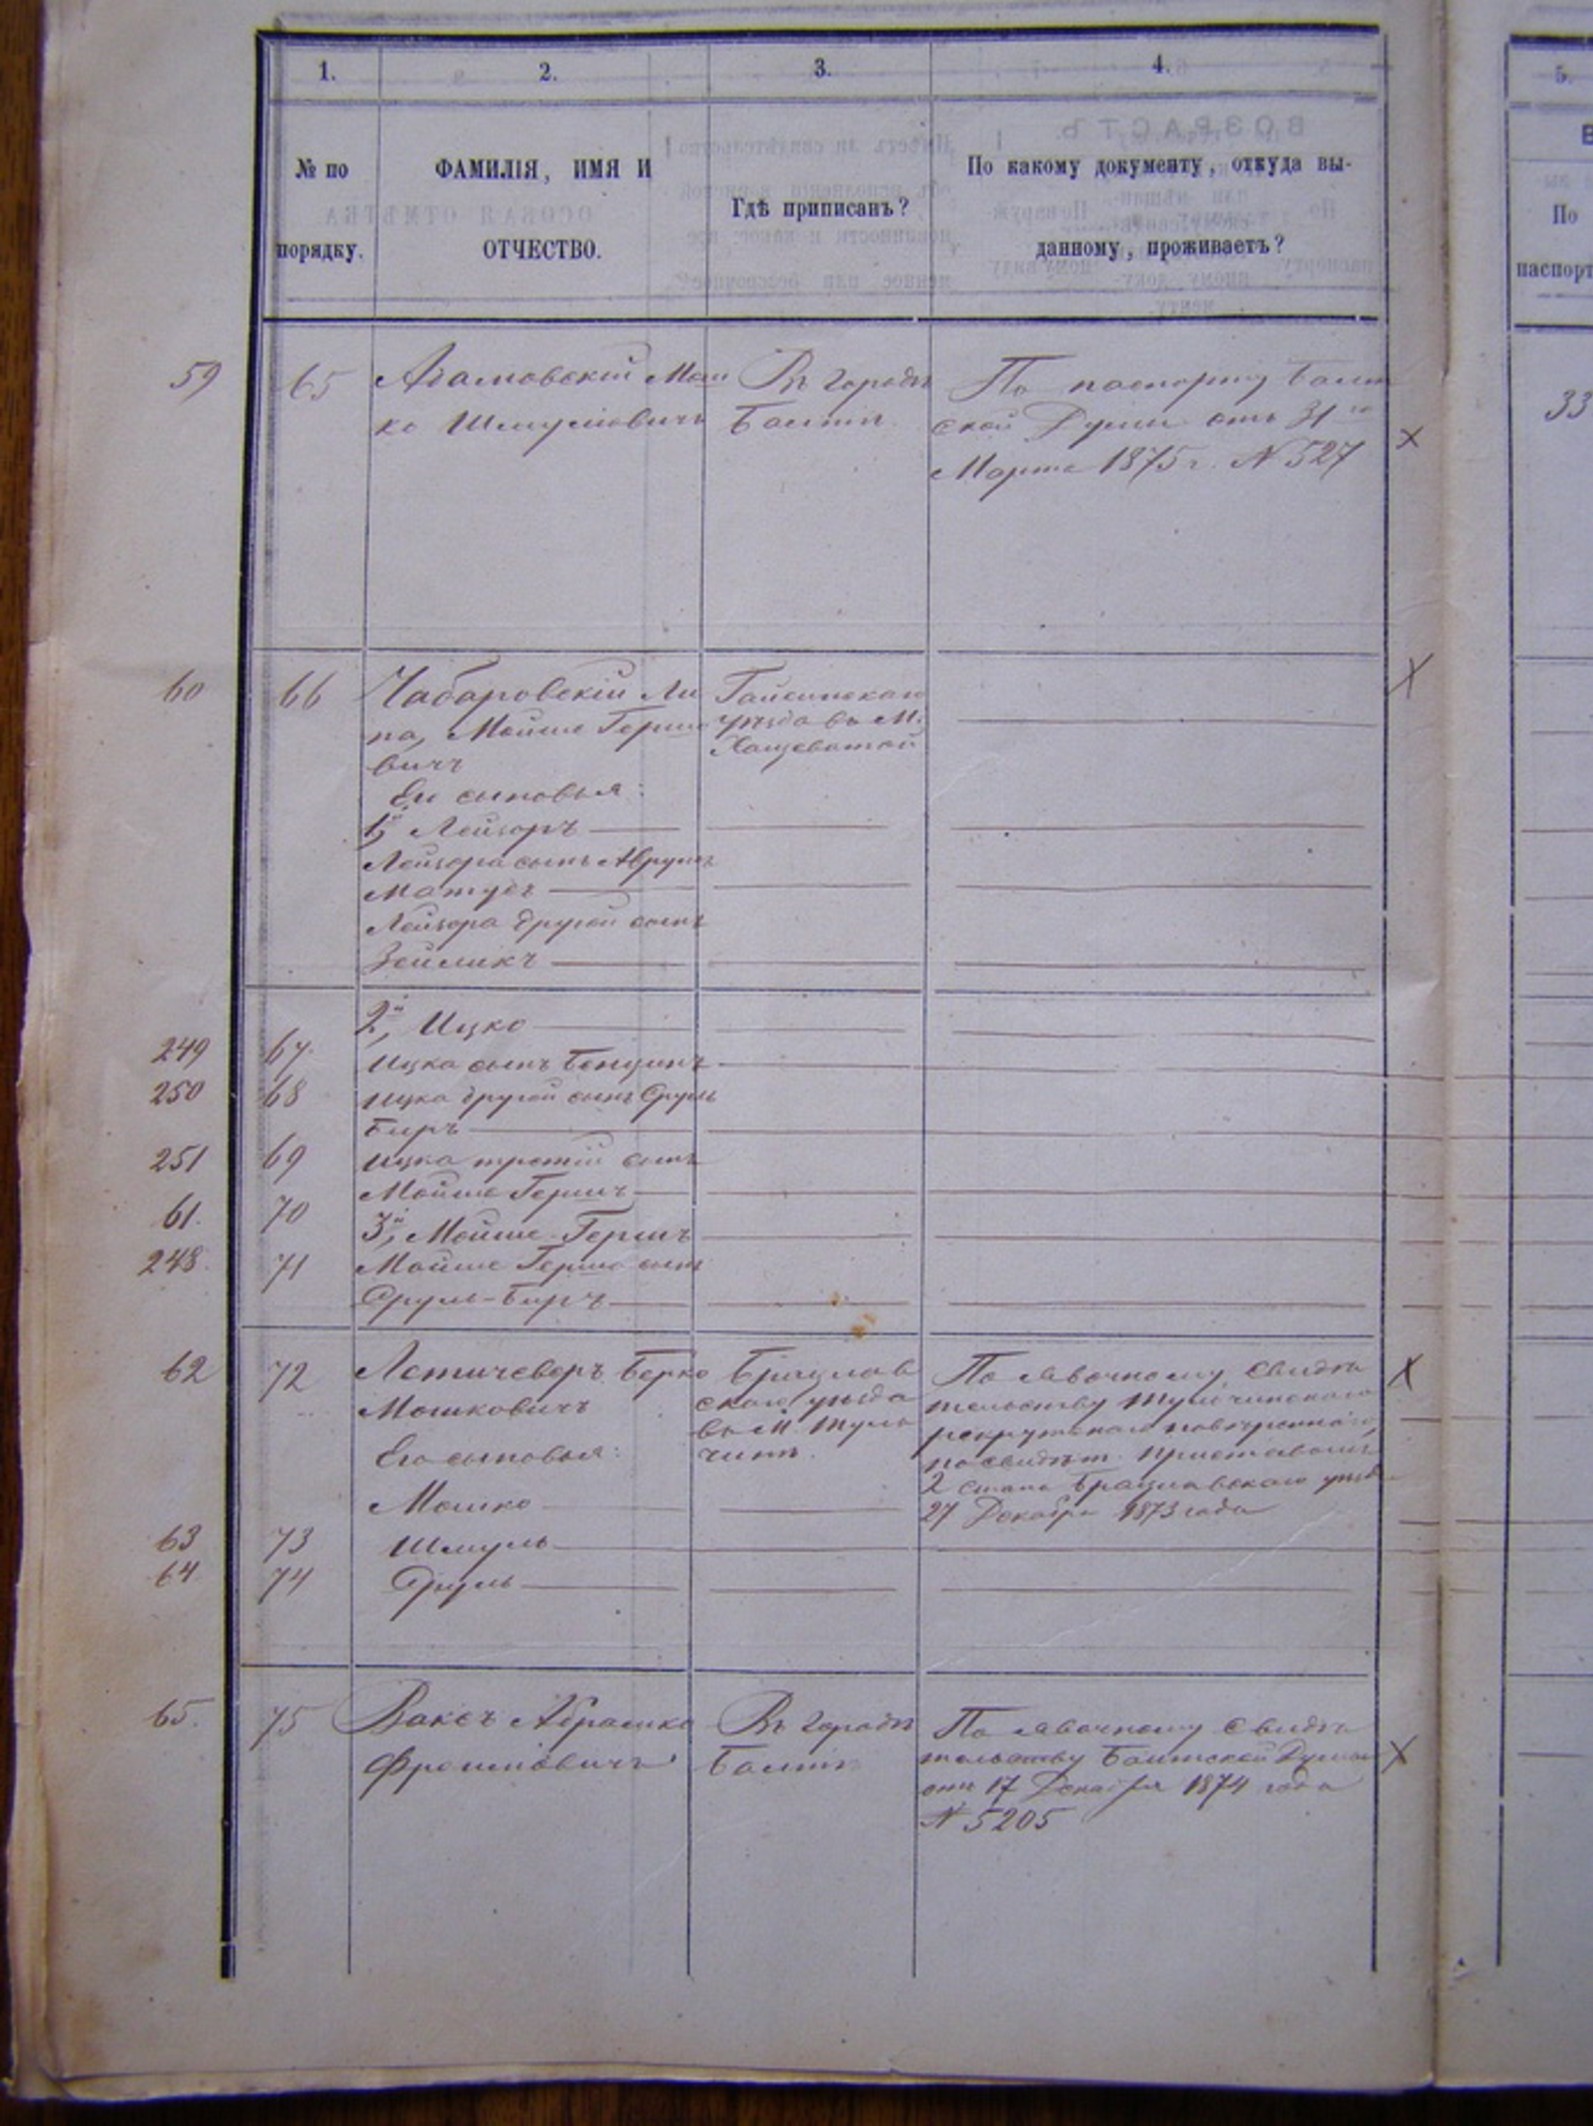 1.
2.
3.
4.
5.
№ по
порядку.
ФАМИЛІЯ, ИМЯ И
ОТЧЕСТВО.
Гдѣ приписанъ?
По какому документу, откуда вы-
данному, проживаетъ?
По
паспорт
59 65 Адамовскій Мош
ко Шмулiовичъ
Въ городѣ
Балтѣ
По паспорту Балт
ской Думы отъ 31го
Марта 1875 г. № 527
33
60 66 Чабаровскій Ли
па, Мойше Гершо
вичъ
Его сыновья:
1й Лейзоръ
Лейзора сынъ Аврумъ
Матусъ
Лейзора другой сынъ
Зейликъ
Гайсинскаго
уѣзда въ М.
Хащеватой
2й, Ицко
249 67 Ицка сынъ Бенционъ
250 68 Ицка другой сынъ Сруль
Беръ
251 69 Ицка третій сынъ
Мойше Гершъ
61. 70 3й, Мойше-Гершъ
248. 71 Мойше Герша сынъ
Сруль-Беръ
62 72 Летичеверъ Берко
Мошковичъ
Его сыновья:
Мошко
63 73 Шмуль
64 74 Сруль
Брацлав
скаго уѣзда
въ М. Туль
чинѣ.
По явочному свидѣ
тельству Тульчинскаго
рекрутскаго повѣреннаго,
посвидѣт. Приставомъ
2 стана Брацлавскаго уѣзд
27 Декабря 1873 года
65. 75 Ваксъ Абрашко
Фроимовичъ
Въ городѣ
Балтѣ
По явочному свидѣ
тельству Балтской Думы
отъ 17 Декабря 1874 года
№ 5205